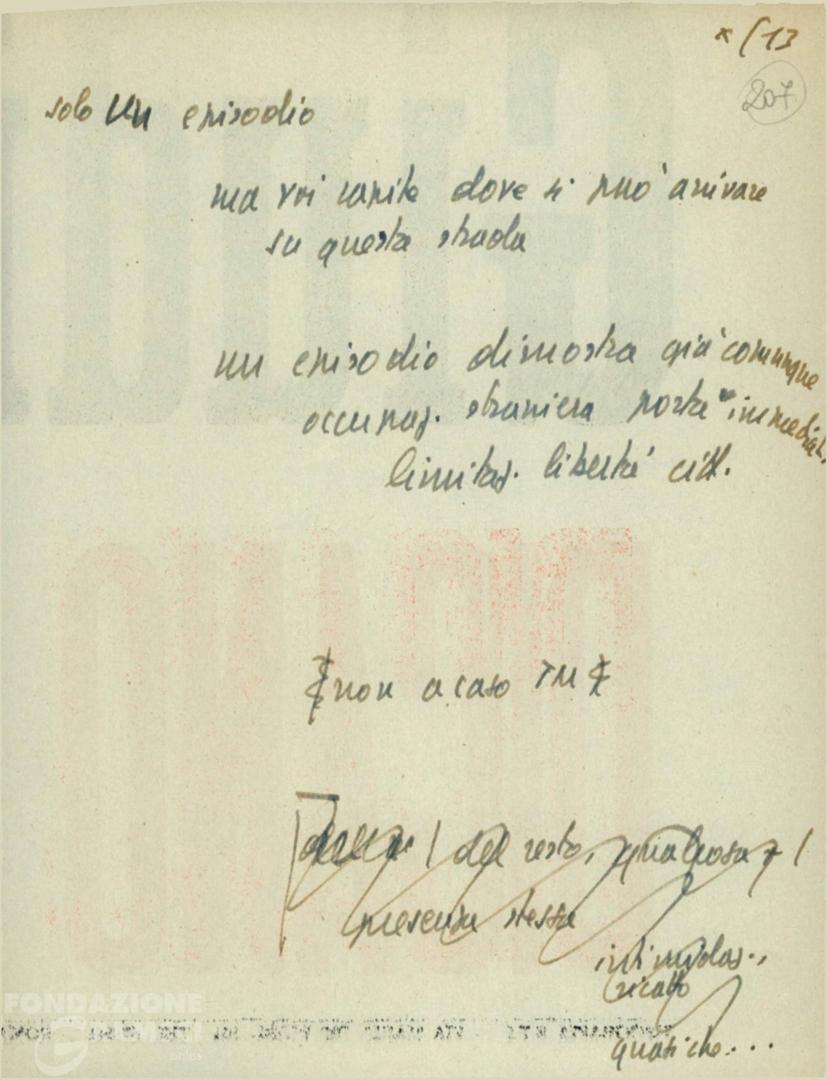 * (13
207
solo un episodio
ma voi capite dove si può arrivare
su questa strada
un episodio dimostra già comunque
occupaz. straniera porta immediat.
limitaz. libertà citt.
non a caso
del resto, qualcosa + /
presenza stessa
intimidaz.,
ricatto
quasi che...
FONDAZIONE